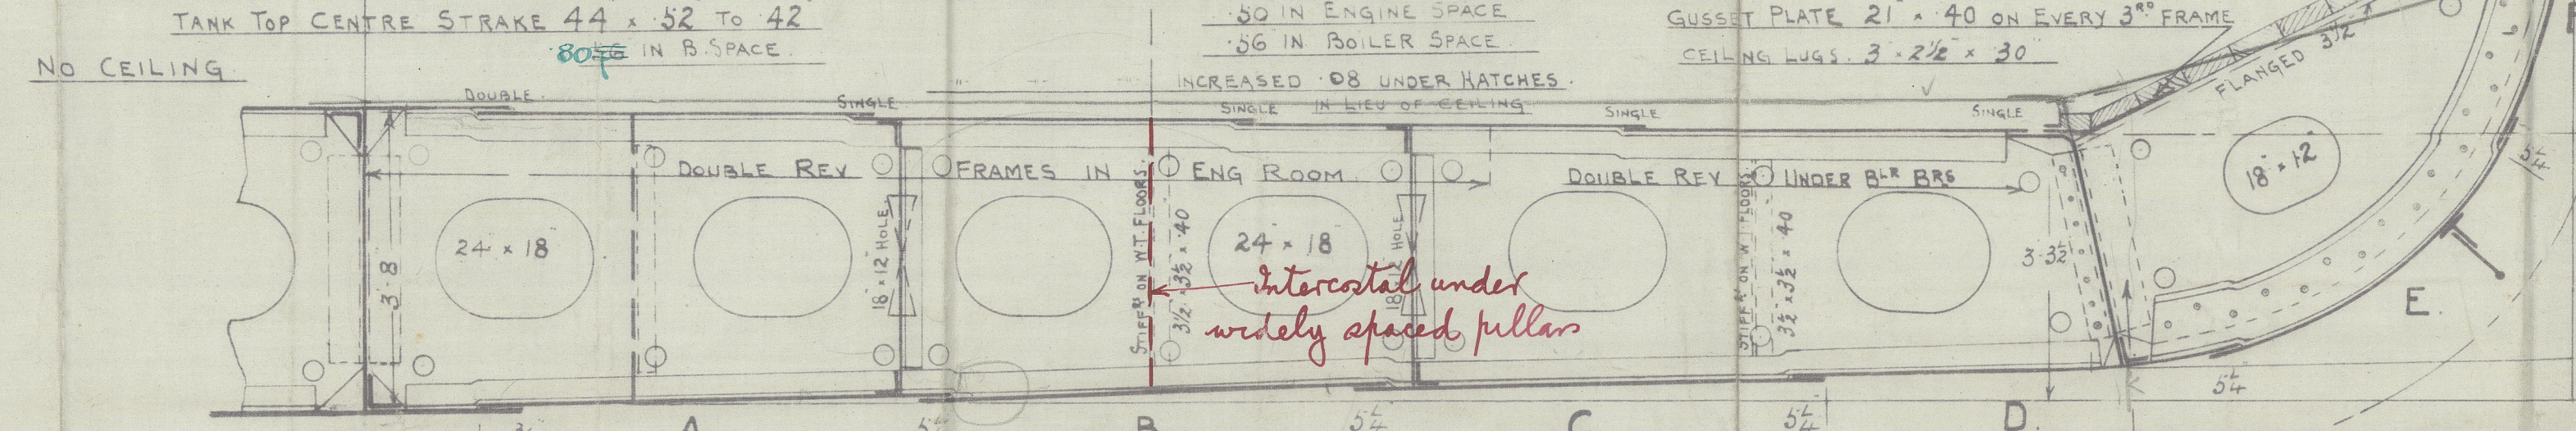 TANK TOP CENTRE STRAKE 44 × .52 TO .42
.80 .56 IN B. SPACE.
NO CEILING
.50 IN ENGINE SPACE
.56 IN BOILER SPACE
INCREASED .08 UNDER HATCHES.
IN LIEU OF CEILING
GUSSET PLATE 21" × .40 ON EVERY 3RD FRAME
CEILING LUGS. 3 × 2½ × .30
FLANGED 3½
DOUBLE
SINGLE
SINGLE
SINGLE
SINGLE
DOUBLE REV FRAMES IN ENG ROOM
DOUBLE REV UNDER BLR BRS
18" × 12"
24" × 18"
24" × 18"
3'-8
18" × 12" HOLE
STIFFRS ON W.T. FLOORS.
3½ × 3½ × .40
18 12 HOLE
STIFFRS ON W.T. FLOORS.
3½ × 3½ × .40
3-3½
Intercostal under
widely spaced pillars
5¼
5¼
E.
A
5¼
B
5¼
C
5¼
D.